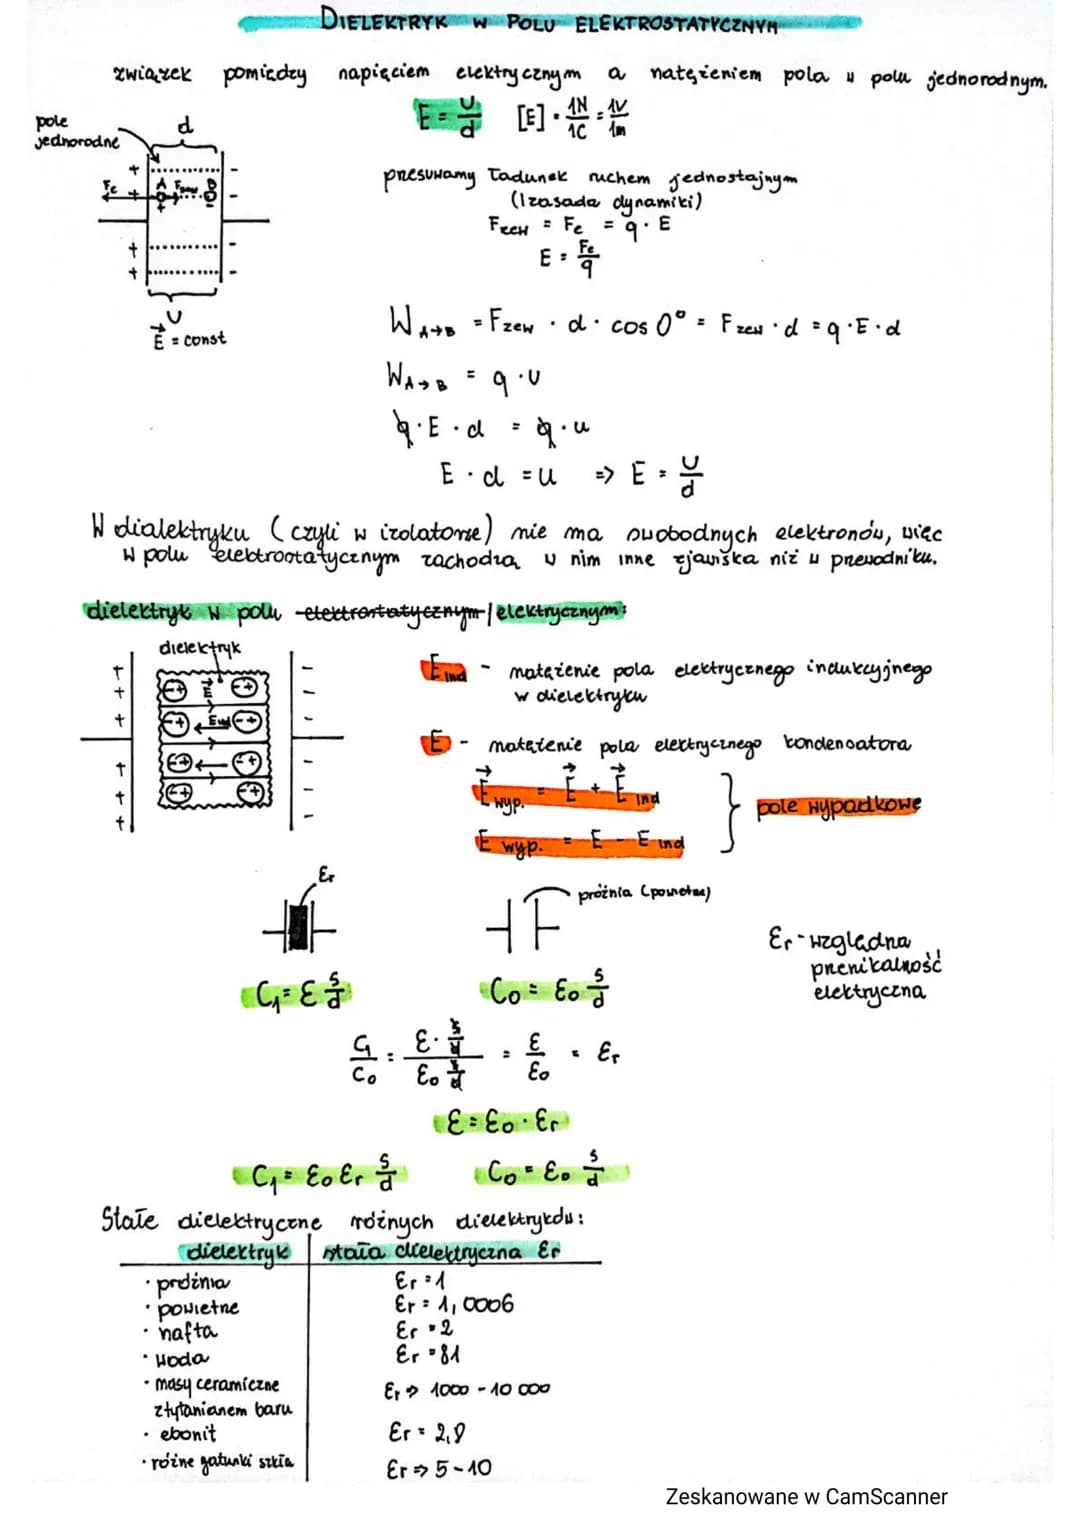 DIELEKTRYK W POLU ELEKTROSTATYCZNYM
związek pomiędzy napięciem elektrycznym a natężeniem pola w polu jednorodnym.
E = U/d [E] = 1N/1C = 1V/1m
pole jednorodne
d
Fe A Fzew B
U
E⃗ = const
przesuwamy ładunek ruchem jednostajnym
(I zasada dynamiki)
Fzew = Fe = q · E
E = Fe/q
W A→B = Fzew · d · cos 0° = Fzew · d = q · E · d
W A→B = q · U
q · E · d = q · u
E · d = u => E = U/d
W dialektryku (czyli w izolatorze) nie ma swobodnych elektronów, więc
w polu elektrostatycznym zachodzą w nim inne zjawiska niż w przewodniku.
dielektryk w polu elektrostatycznym / elektrycznym:
dielektryk
E⃗
Eind
E ind - natężenie pola elektrycznego indukcyjnego
w dielektryku
E - natężenie pola elektrycznego kondensatora
E⃗ wyp. = E⃗ + E⃗ ind
E wyp. = E - E ind
pole wypadkowe
εr
próżnia (powietrze)
C₁ = ε s/d
C₀ = ε₀ s/d
εr - względna
przenikalność
elektryczna
C₁/C₀ = ε · s/d / ε₀ s/d = ε/ε₀ = εr
ε = ε₀ · εr
C₁ = ε₀ εr s/d
C₀ = ε₀ s/d
Stałe dielektryczne różnych dielektryków:
dielektryk stała dielektryczna εr
· próżnia εr = 1
· powietrze εr = 1,0006
· nafta εr = 2
· woda εr = 81
· masy ceramiczne
z tytanianem baru εr => 1000 - 10 000
· ebonit εr = 2,8
· różne gatunki szkła εr => 5 - 10
Zeskanowane w CamScanner